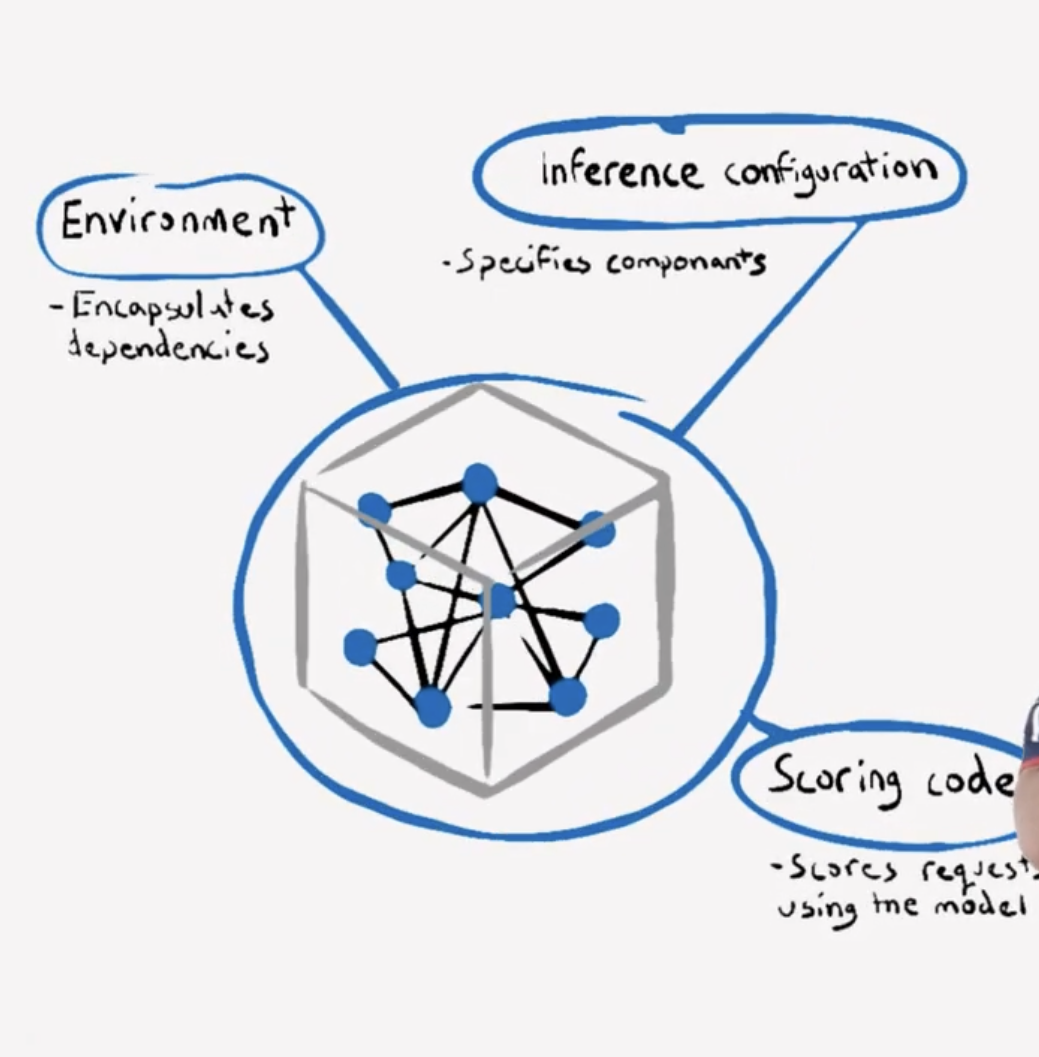 Environment
-Encapsulates
dependencies
Inference configuration
-Specifies componants
Scoring code
-Scores requests
using the model